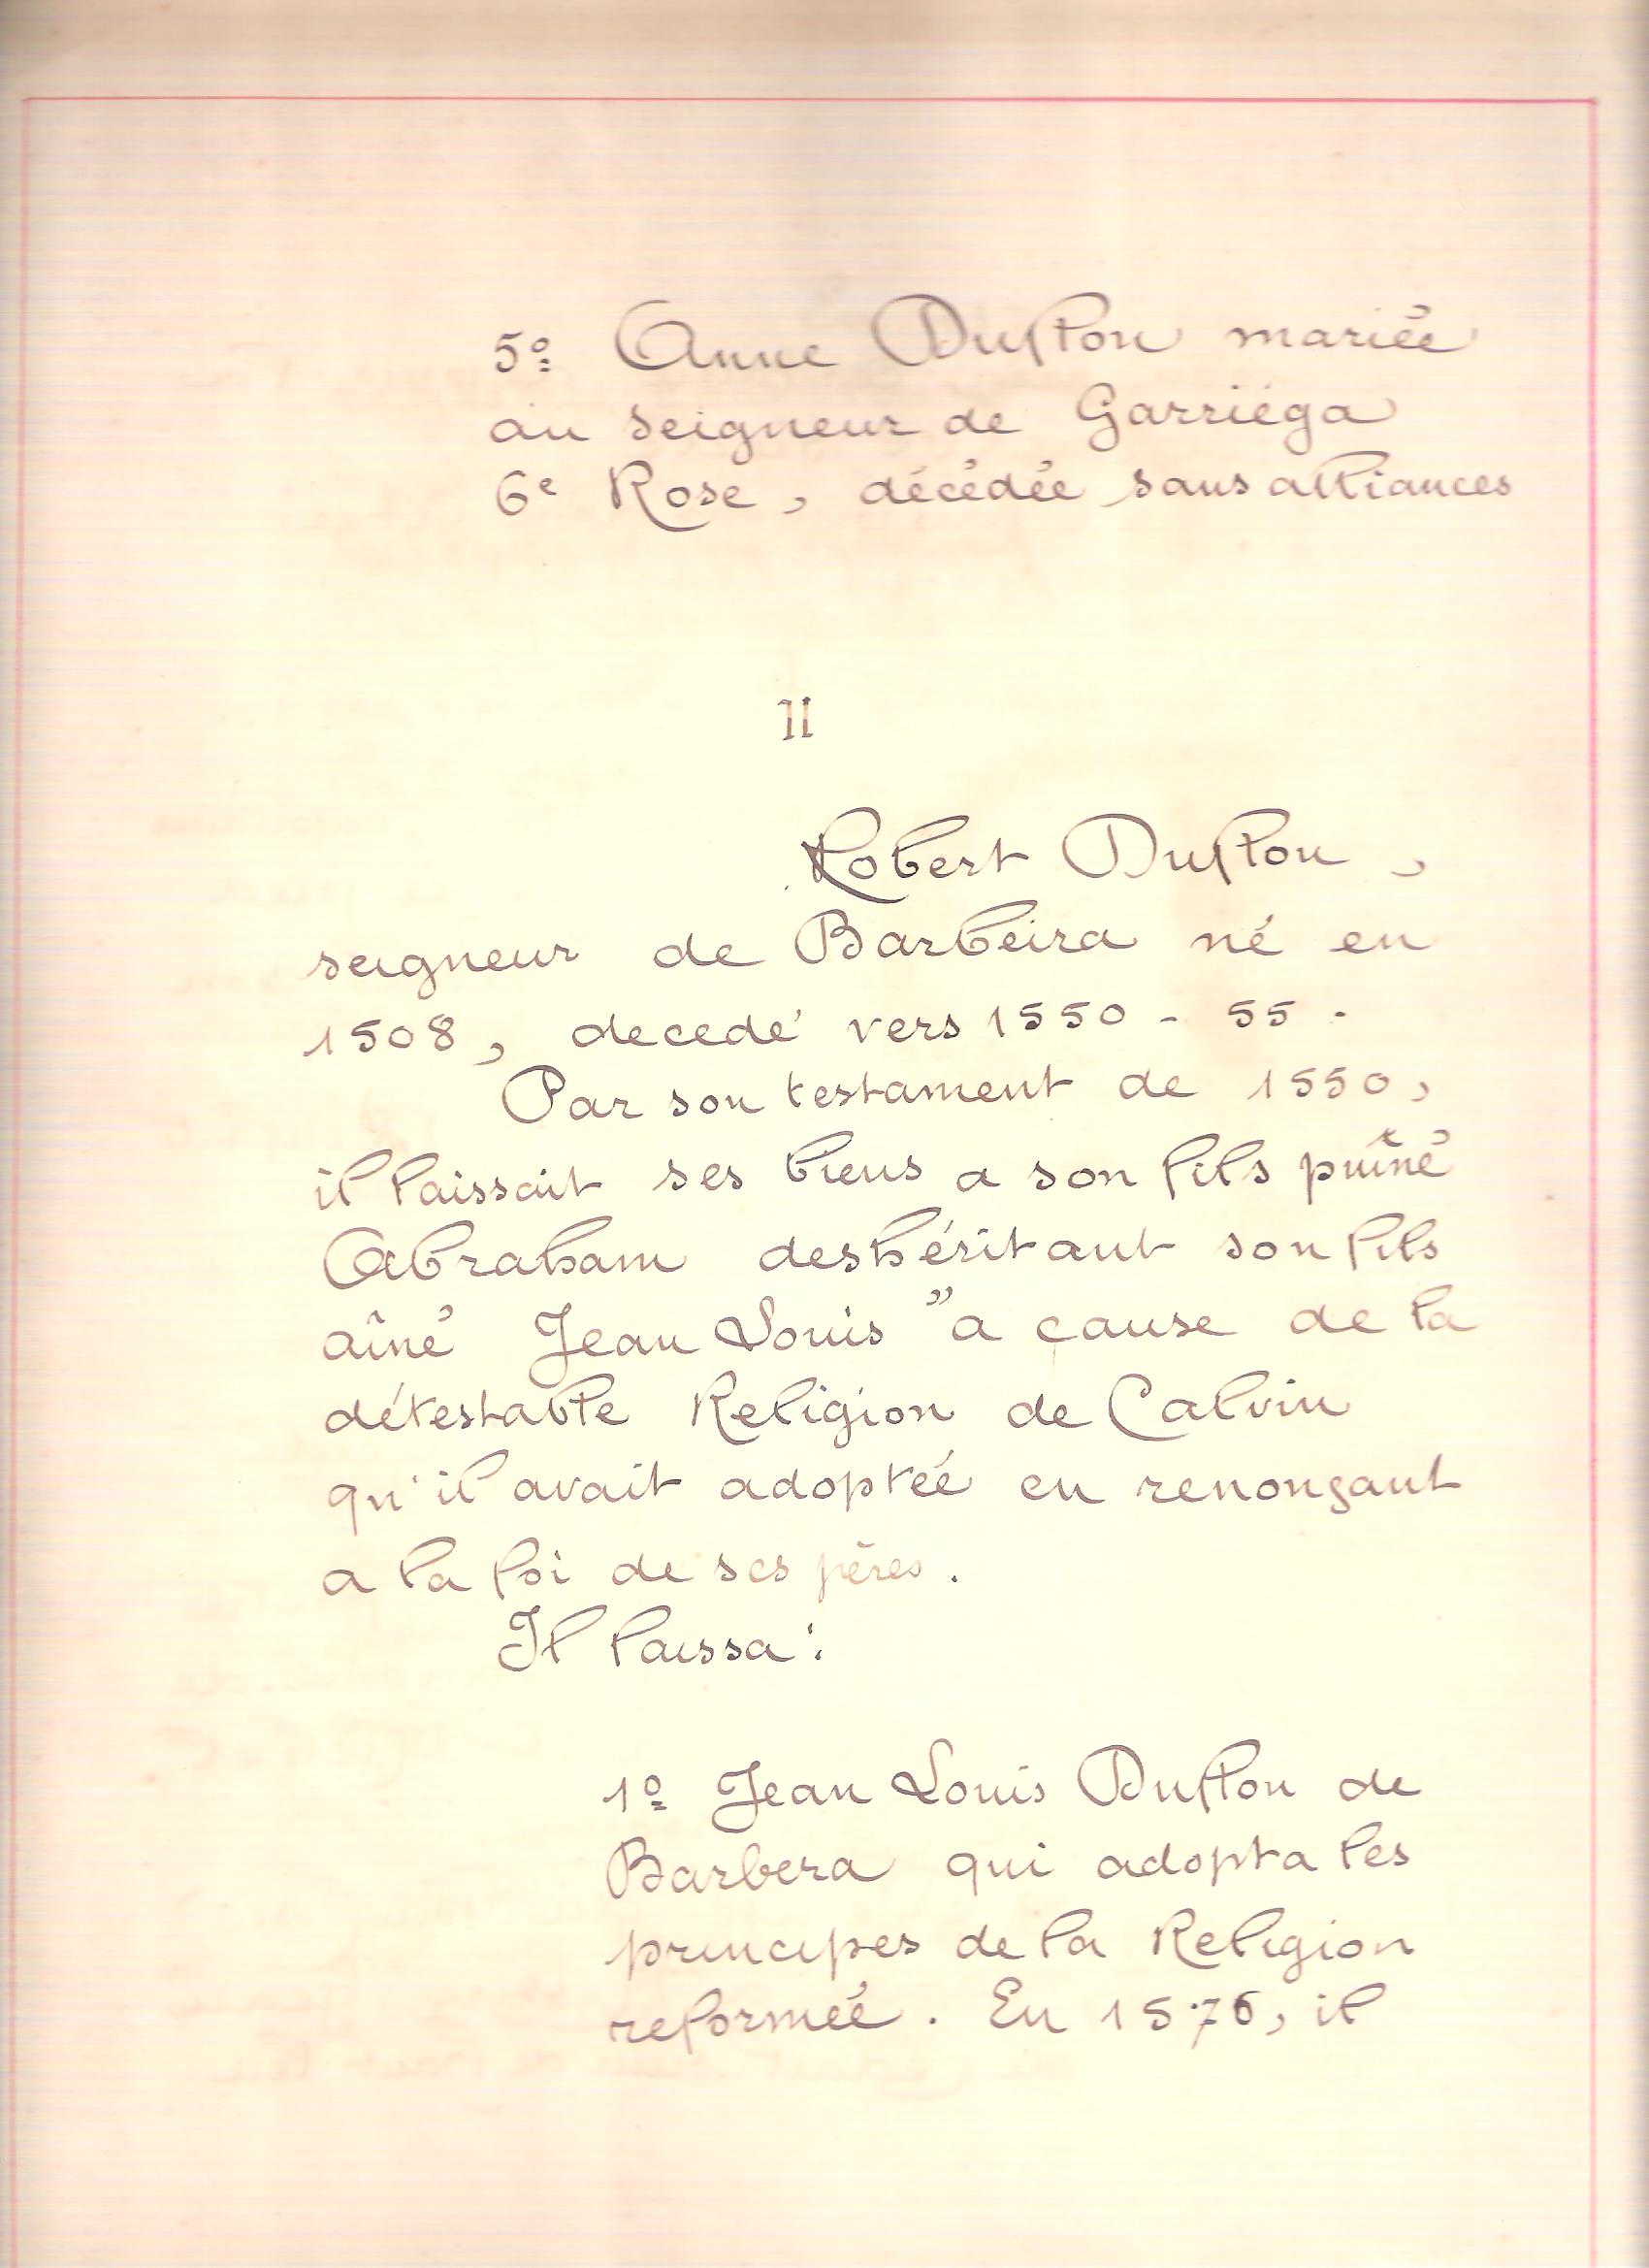 5º Anne Duflon mariée
au seigneur de Garriéga
6e Rose, décédée sans alliances
II
Robert Duflon,
seigneur de Barbeira né en
1508, decedé vers 1550 - 55 -
Par son testament de 1550,
il laissait ses biens a son fils puîné
Abraham deshéritant son fils
aîné Jean Louis "a cause de la
détestable Religion de Calvin
qu'il avait adoptée en renonçant
a la foi de ses pères.
Il laissa :
1º Jean Louis Duflon de
Barbera qui adopta les
principes de la Religion
reformée. En 1576, il